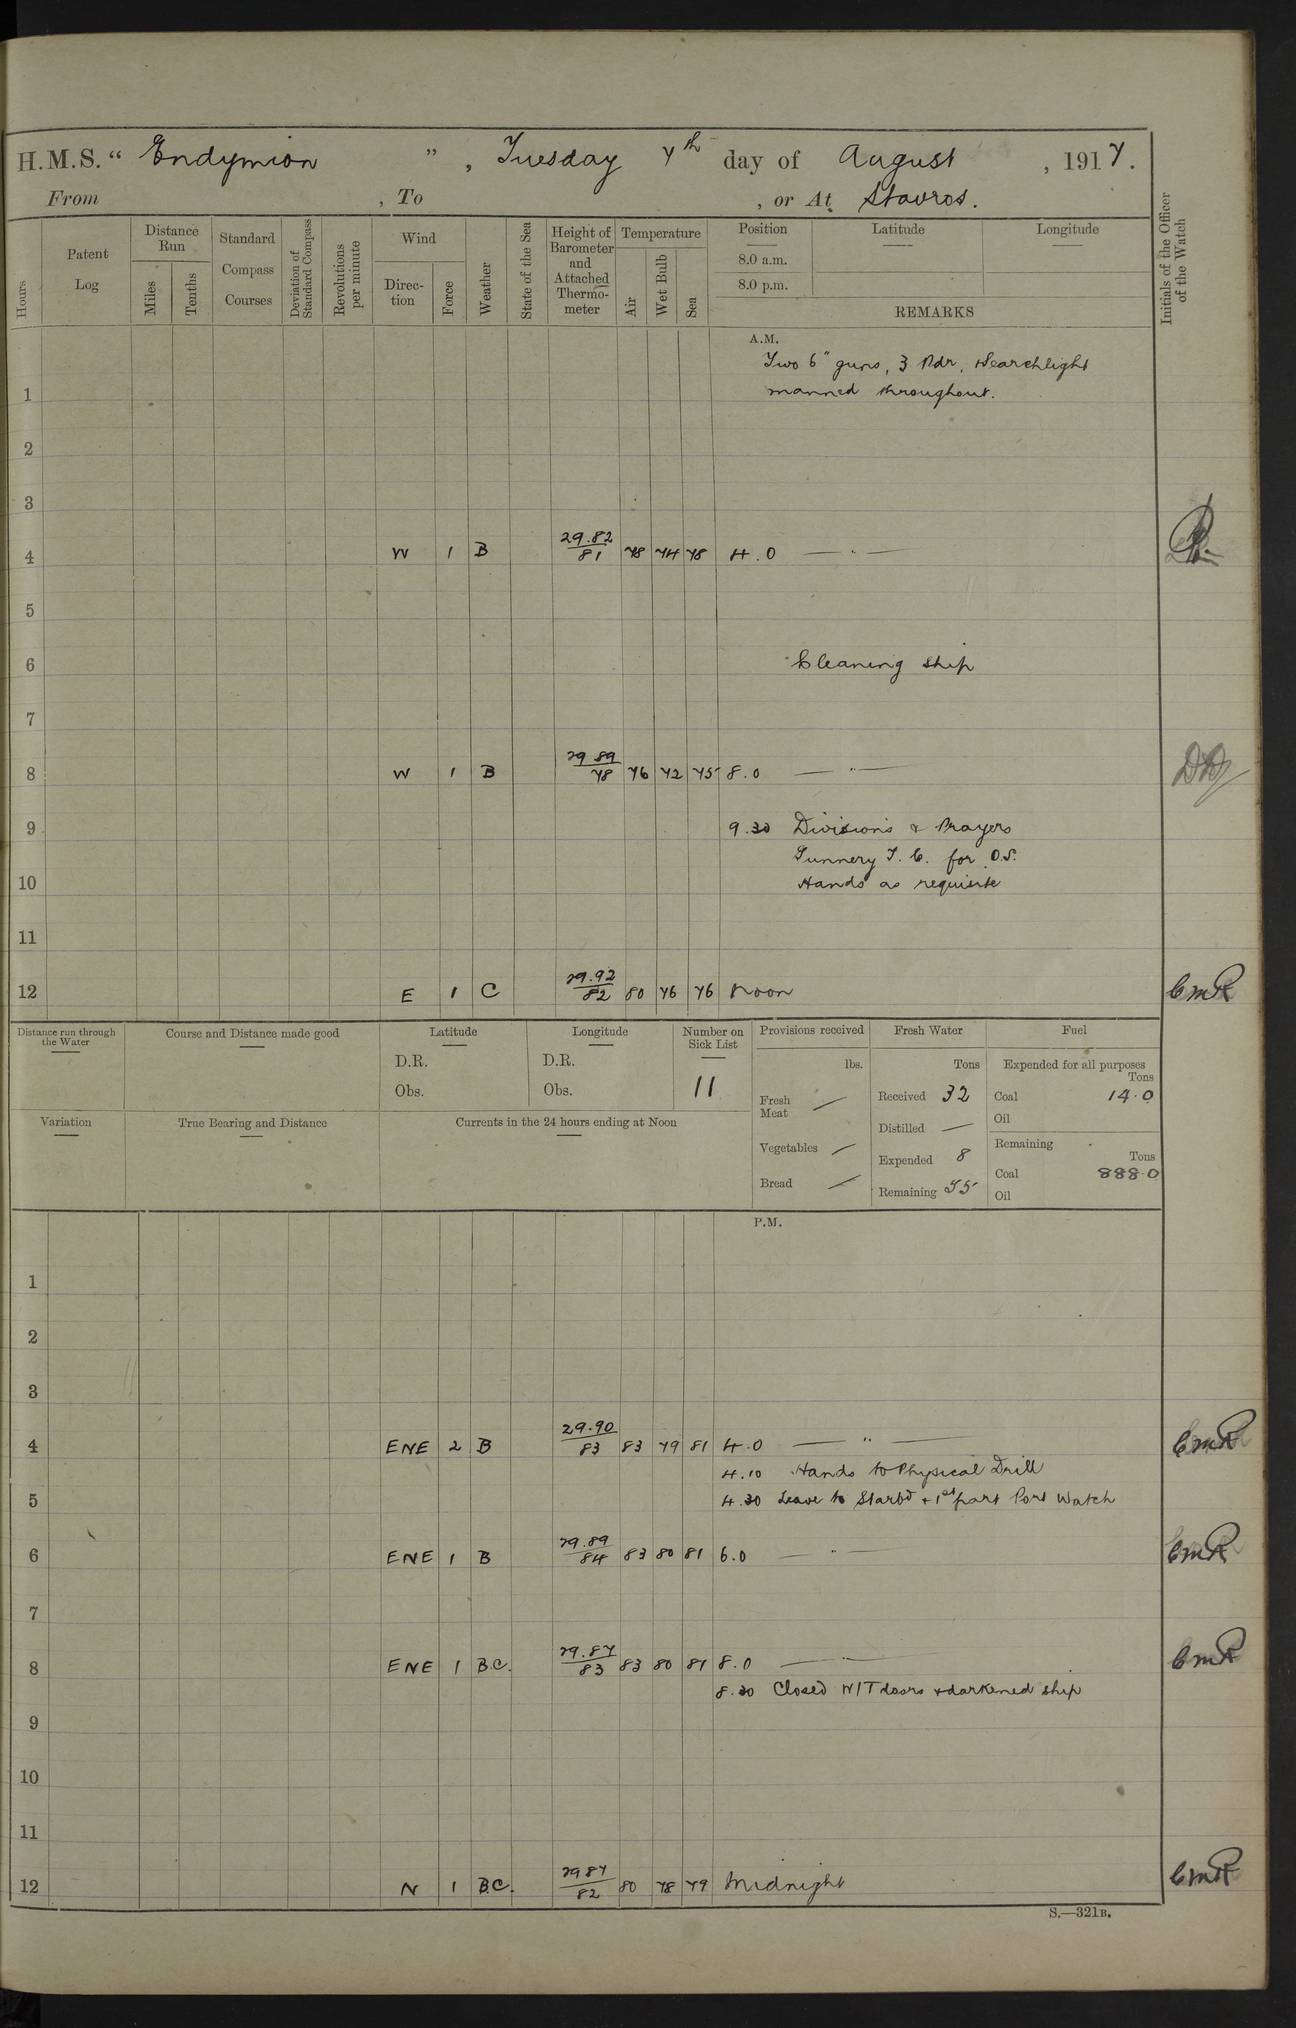 H.M.S. “ Endymion ” , Tuesday 7th day of August , 1917.
From , To , or At Stavros.
Hours
Patent Log
Distance Run
Miles
Tenths
Standard Compass Courses
Deviation of Standard Compass
Revolutions per minute
Wind
Direction
Force
Weather
State of the Sea
Height of Barometer and Attached Thermometer
Temperature
Air
Wet Bulb
Sea
Position
8.0 a.m.
8.0 p.m.
Latitude
Longitude
REMARKS
Initials of the Officer of the Watch
A.M.
Two 6" guns, 3 Pdr, & Searchlight
1 manned throughout.
2
3
4 W 1 B 29.82/81 78 74 78 4.0 — " —
5
6 Cleaning ship
7
8 W 1 B 29 89/78 76 72 75 8.0 — " —
9 9.30 Divisions & Prayers
Gunnery T. C. for O.S.
10 Hands as requisite
11
12 E 1 C 29.92/82 80 76 76 Noon CMR
Distance run through the Water
Course and Distance made good
Latitude
D.R.
Obs.
Longitude
D.R.
Obs.
Number on Sick List
11
Provisions received
lbs.
Fresh Meat —
Vegetables —
Bread —
Fresh Water
Tons
Received 32
Distilled —
Expended 8
Remaining 55
Fuel
Expended for all purposes
Tons
Coal 14.0
Oil
Remaining
Tons
Coal 888.0
Oil
Variation
True Bearing and Distance
Currents in the 24 hours ending at Noon
P.M.
1
2
3
4 ENE 2 B 29.90/83 83 79 81 4.0 — " — CMR
4.10 Hands to Physical Drill
5 4.30 Leave to Starbd & 1st part Port Watch
6 ENE 1 B 29.89/84 83 80 81 6.0 — " — CMR
7
8 ENE 1 B.C. 29.87/83 83 80 81 8.0 — " — CMR
8.30 Closed W/T doors & darkened ship
9
10
11
12 N 1 B.C. 29 87/82 80 78 79 Midnight CMR
S.—321B.